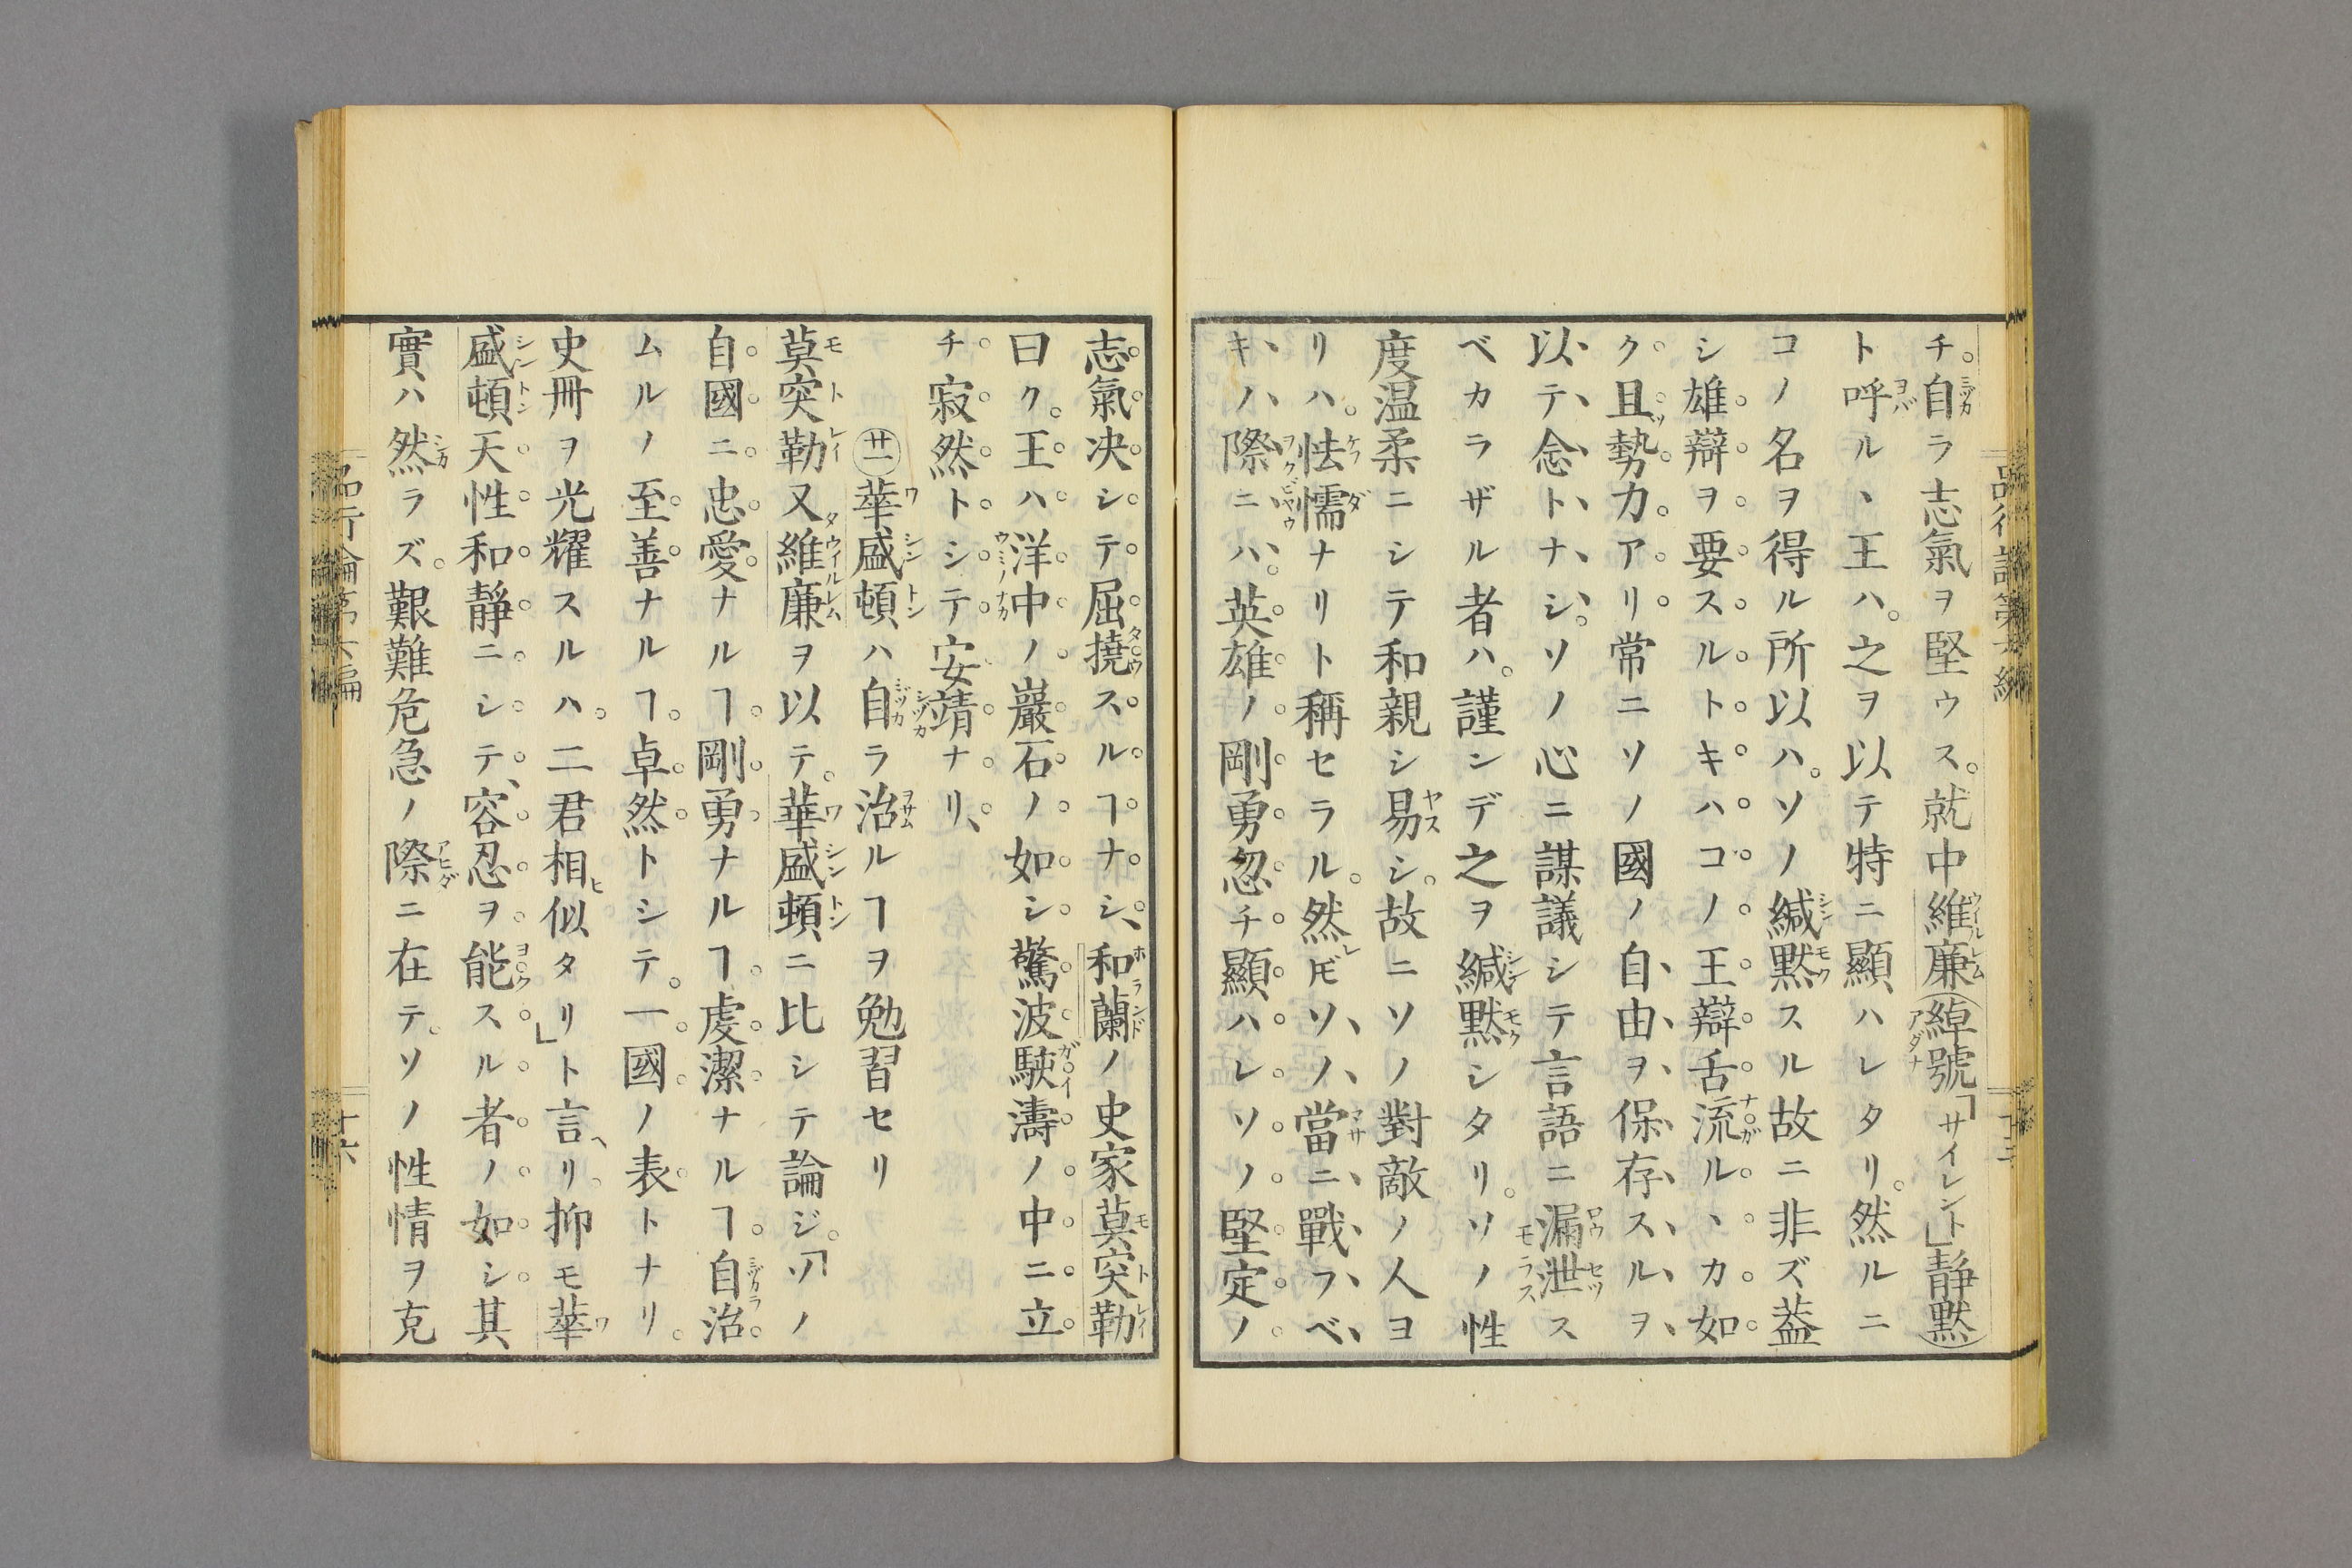 チ自ラ志氣ヲ堅ウス。就中維廉(綽號「サイレント」靜默)
ト呼ルヽ王ハ。之ヲ以テ特ニ顯ハレタリ。然ルニ
コノ名ヲ得ル所以ハ。ソノ緘黙スル故ニ非ズ葢
シ雄辯ヲ要スルトキハコノ王辯舌流ルヽカ如
ク且勢力アリ常ニソノ國ノ自由ヲ保存スルヲ
以テ念トナシ。ソノ心ニ謀議シテ言語ニ漏泄ス
ベカラザル者ハ。謹ンデ之ヲ緘黙シタリ。ソノ性
度温柔ニシテ和親シ易シ。故ニソノ對敵ノ人ヨ
リハ。怯懦ナリト稱セラル。然レ𪜈ソノ當ニ戰フベ
キノ際ニハ。英雄ノ剛勇忽チ顯ハレソノ堅定ノ
志氣决シテ屈撓スルヿナシ、和蘭ノ史家莫突勒
曰ク。王ハ洋中ノ巖石ノ如シ驚波駛濤ノ中ニ立
チ寂然トシテ安靖ナリ、
㊂廿一 華盛頓ハ自ラ治ルヿヲ勉習セリ
莫突勒又維廉ヲ以テ。華盛頓ニ比シテ論ジ。「ソノ
自國ニ忠愛ナルヿ剛勇ナルヿ虔潔ナルヿ自治
ムルノ至善ナルヿ卓然トシテ。一國ノ表トナリ。
史冊ヲ光耀スルハ二君相似タリ」ト言ヘリ、抑モ華
盛頓天性和靜ニシテ、容忍ヲ能スル者ノ如シ其
實ハ然ラズ。艱難危急ノ際ニ在テ。ソノ性情ヲ克
品行論第六編
十六